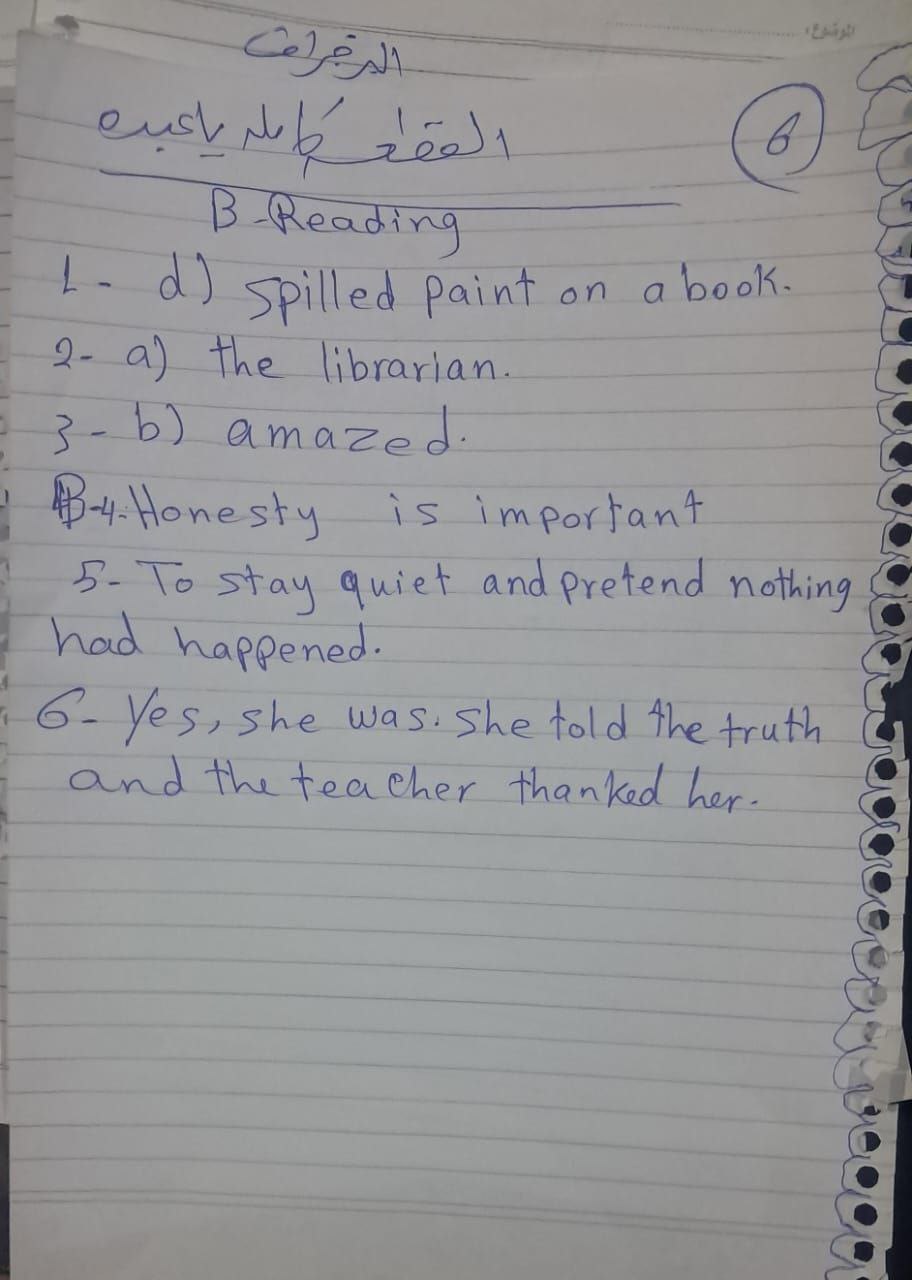 الموضوع:
6
B-Reading
1- d) spilled paint on a book.
2- a) the librarian.
3- b) amazed.
B-4-Honesty is important
5- To stay quiet and pretend nothing
had happened.
6- Yes, she was. She told the truth
and the teacher thanked her.